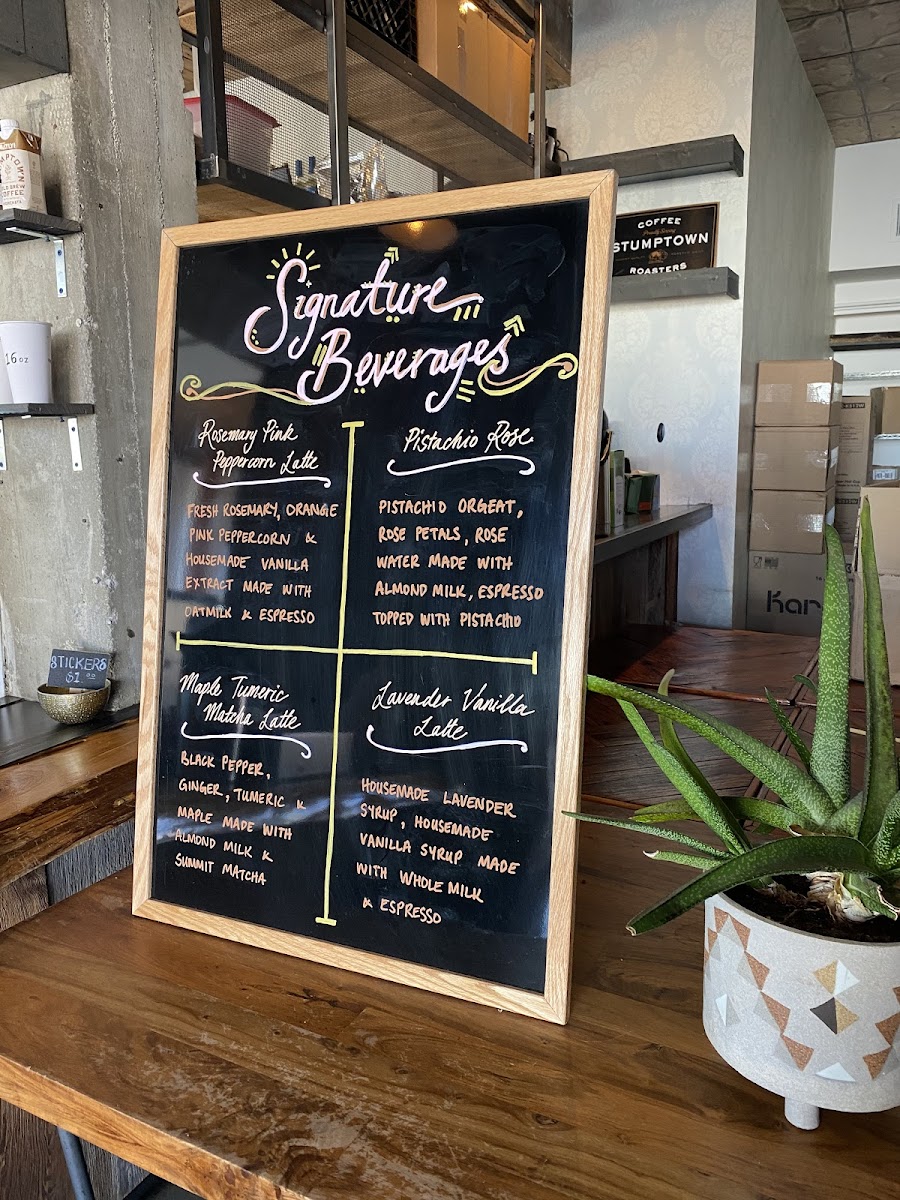 Signature
Beverages
Rosemary Pink
Peppercorn Latte
FRESH ROSEMARY, ORANGE
PINK PEPPERCORN &
HOUSEMADE VANILLA
EXTRACT MADE WITH
OATMILK & ESPRESSO
Pistachio Rose
PISTACHIO ORGEAT,
ROSE PETALS, ROSE
WATER MADE WITH
ALMOND MILK, ESPRESSO
TOPPED WITH PISTACHIO
Maple Tumeric
Matcha Latte
BLACK PEPPER,
GINGER, TUMERIC &
MAPLE MADE WITH
ALMOND MILK &
SUMMIT MATCHA
Lavender Vanilla
Latte
HOUSEMADE LAVENDER
SYRUP, HOUSEMADE
VANILLA SYRUP MADE
WITH WHOLE MILK
& ESPRESSO
COFFEE
Proudly Serving
STUMPTOWN
ROASTERS
16 OZ
STICKERS
$1.00
COFFEE
Kar